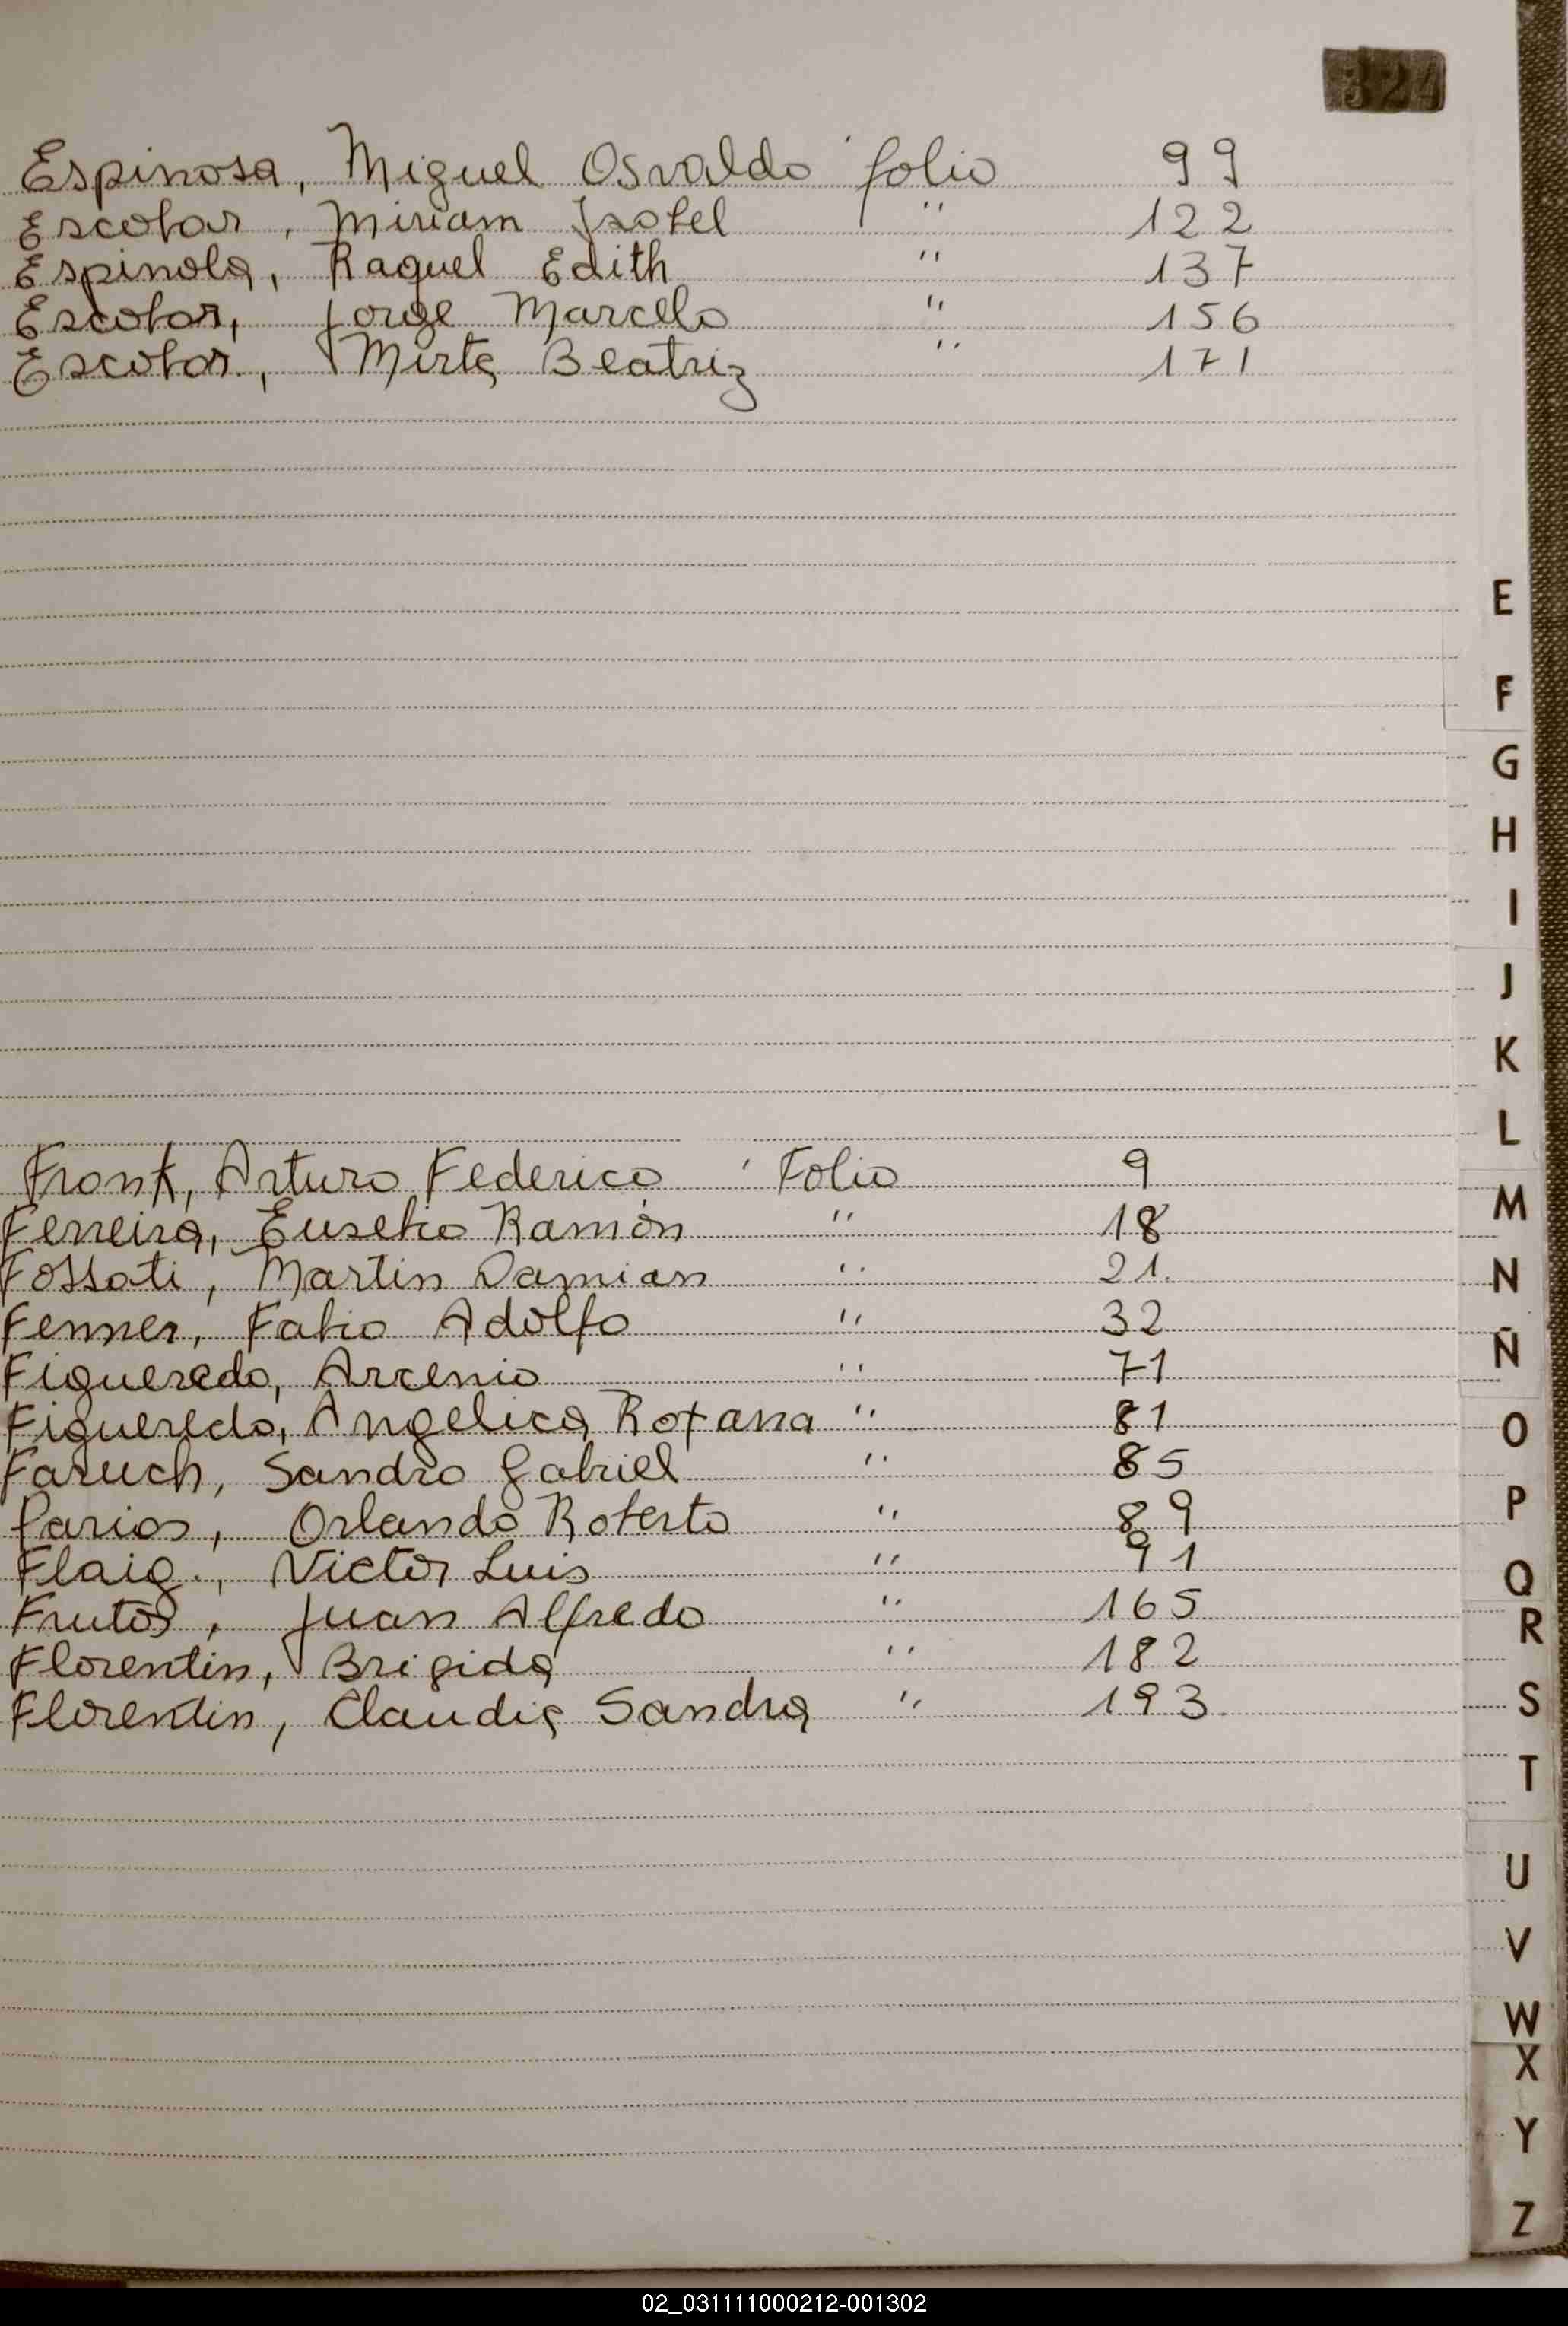 324
Espinosa, Miguel Osvaldo folio 99
Escobar, Miriam Isabel " 122
Espinola, Raquel Edith " 137
Escobar, Jorge Marcelo " 156
Escobar, Mirta Beatriz " 171
E
F
G
H
I
J
K
L
Frank, Arturo Federico Folio 9
M
Ferreira, Eusebio Ramón " 18
Fossati, Martin Damian " 21.
N
Fenner, Fabio Adolfo " 32
Ñ
Figueredo, Arcenio " 71
Figueredo, Angelica Roxana " 81
O
Faruch, Sandro Gabriel " 85
P
Farias, Orlando Roberto " 89
Flaig., Victor Luis " 91
Q
Frutos, Juan Alfredo " 165
R
Florentin, Brigida " 182
Florentin, Claudia Sandra " 193
S
T
U
V
W
X
Y
Z
02_031111000212-001302